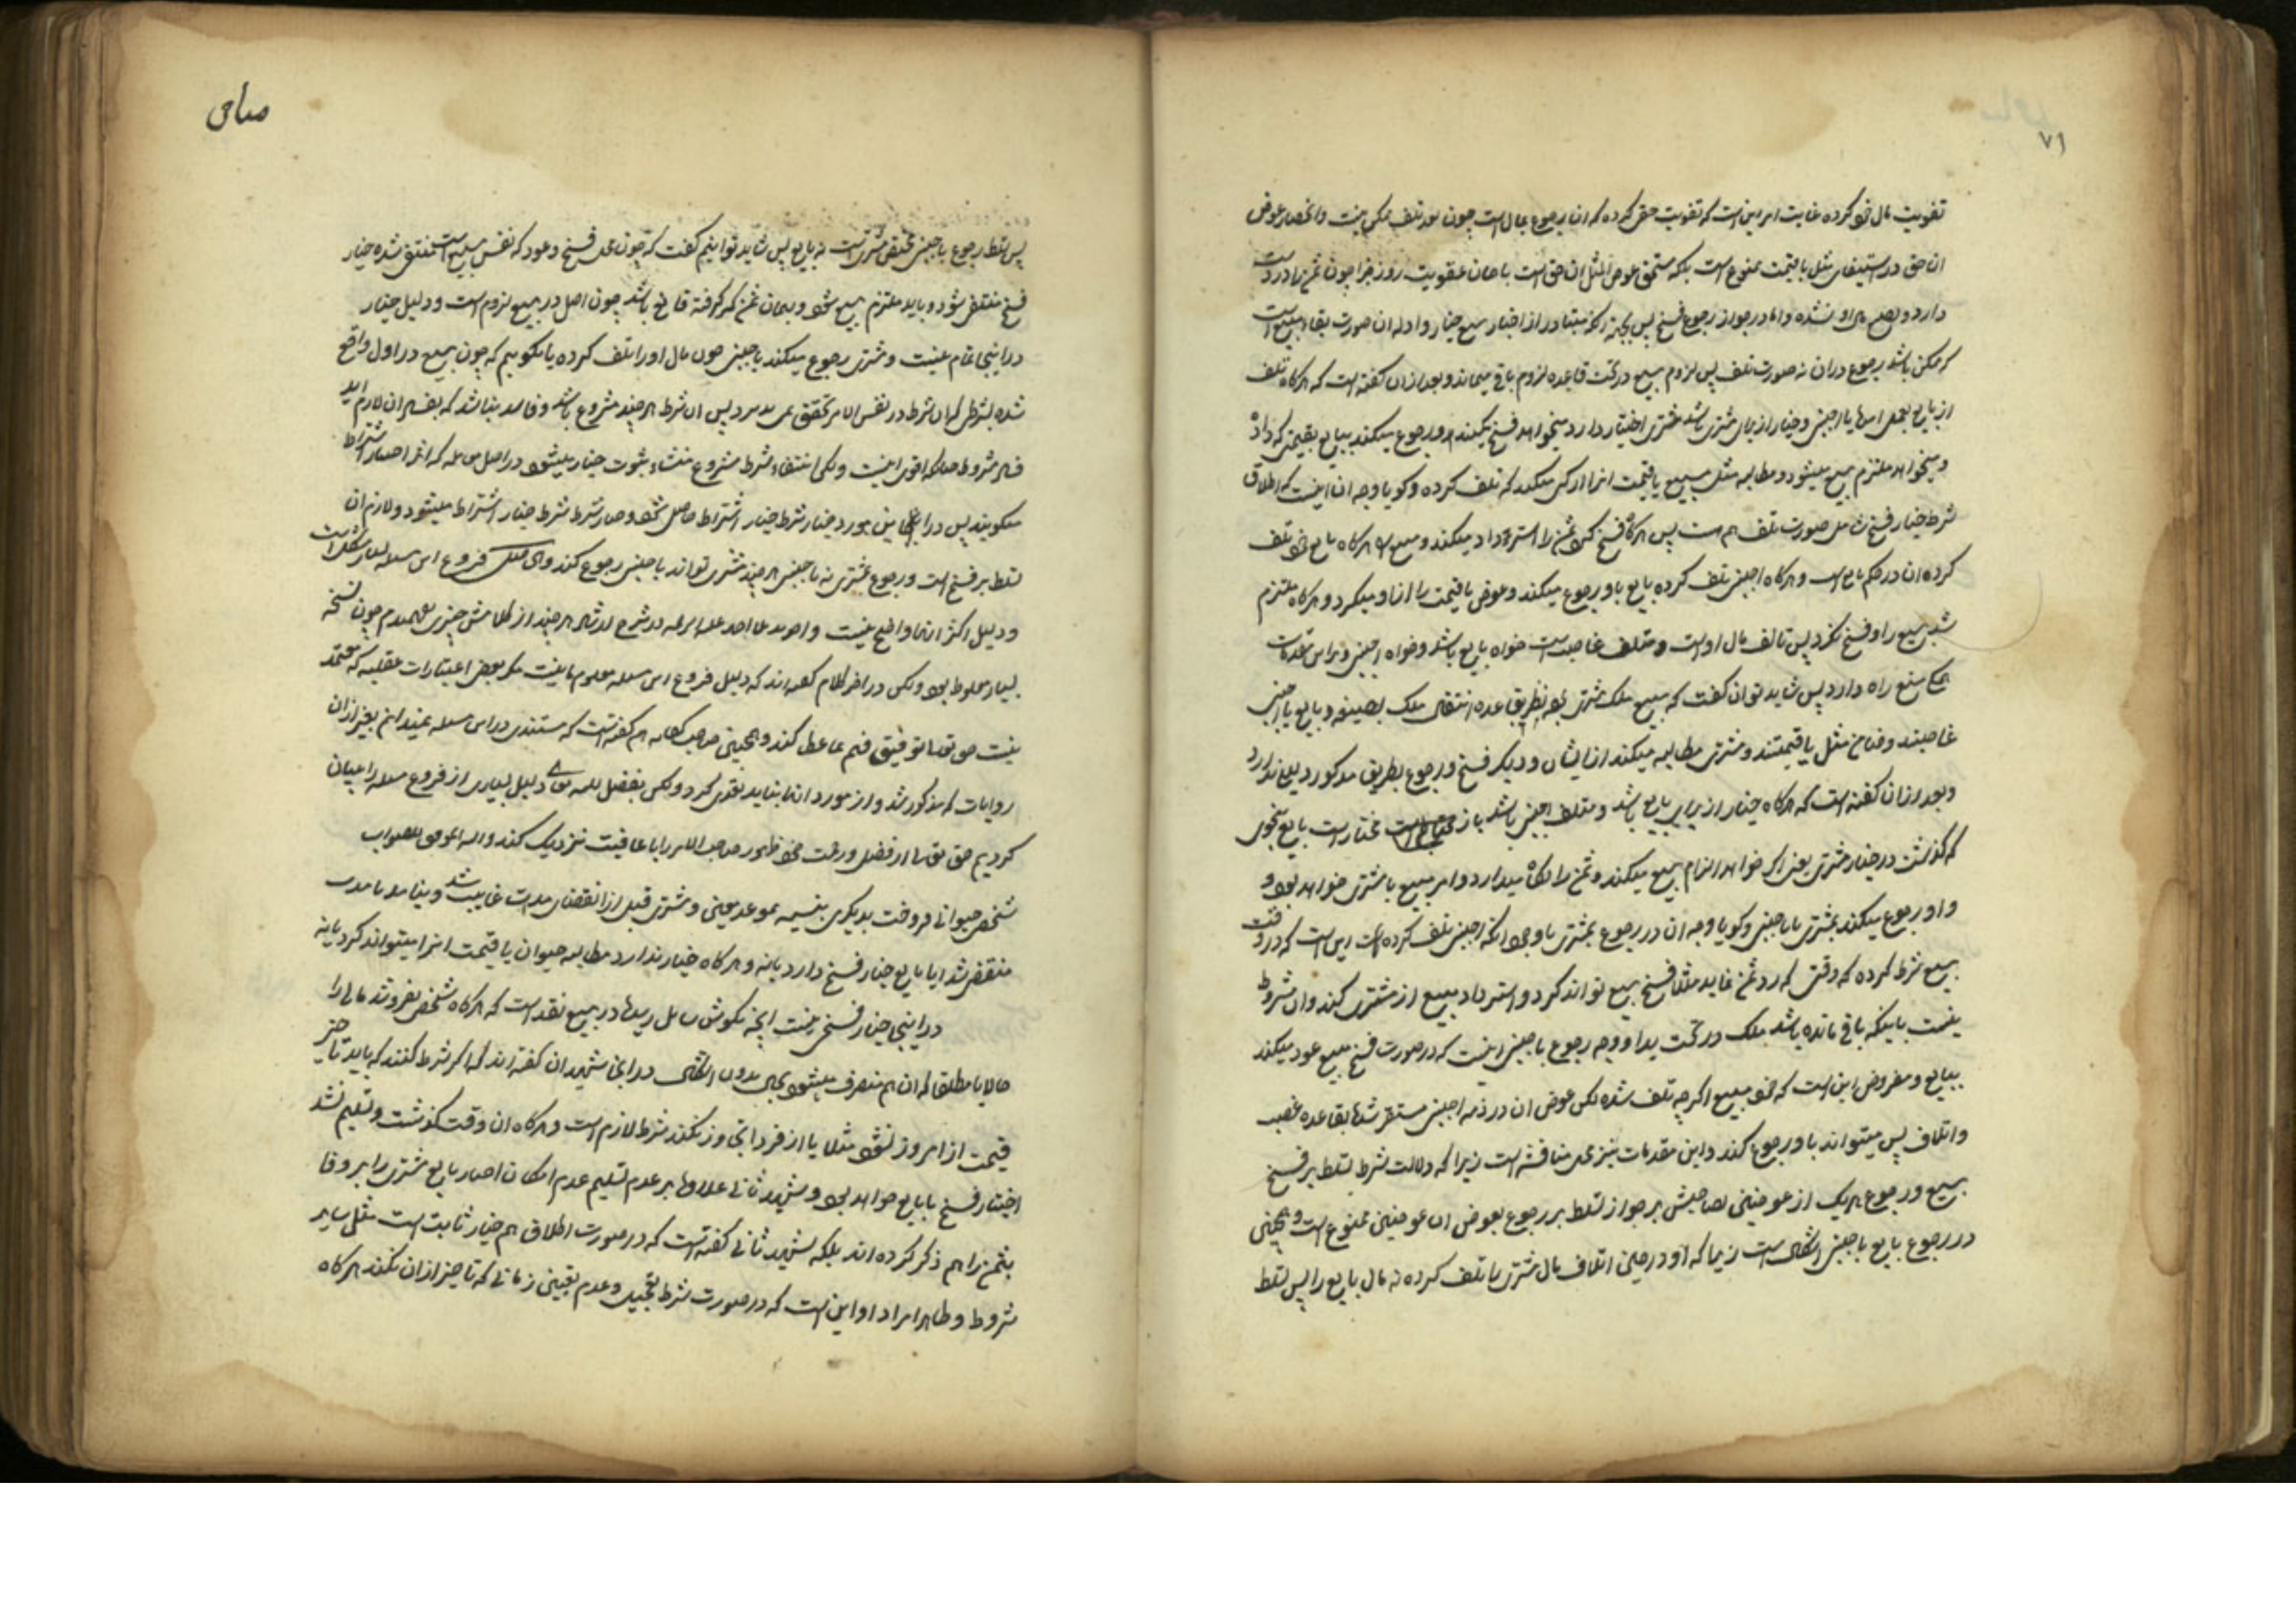 ۷۱
تفویت مال خود کرده غایت امر این است که تفویت حقی کرده که ان رجوع بمال است چون بعد تلف ممکن نیست وانحصار عوض
ان حق در استیفای مثل یا قیمت ممنوع است بلکه مستحق عوض المثل ان حق است با همان عقوبت روز جزا چون ثمن نزد او در دست
دارد و بصلح هم او نشده واما در جواز رجوع فسخ پس بجهة انکه متبادر از اخبار بیع خیار وادله ان صورت بقاء مبیع است
که ممکن باشد رجوع دران نه صورت تلف پس لزوم بیع در تحت قاعده لزوم باقی میماند وبعد ازان گفته است که هرگاه تلف
از بایع بعمل امده یا اجنبی وخیار از برای مشتری باشد مشتری اختیار دارد میخواهد فسخ میکند و رجوع میکند ببایع بقیمتی که داده
و میخواهد ملتزم بیع میشود و مطالبه مثل مبیع یا قیمت انرا از کسی میکند که تلف کرده و گویا وجه ان اینست که اطلاق
شرط خیار فسخ شامل صورت تلف هم است پس هرگاه فسخ کرد ثمن را استرداد میکند و مبیع هرگاه بایع خود تلف
کرده ان در حکم بایع است و هرگاه اجنبی تلف کرده بایع باو رجوع میکند و عوض یا قیمت را از او میگیرد و هرگاه ملتزم
شد بیع را و فسخ نکرد پس تالف مال او است و متلف غاصب است خواه بایع باشد و خواه اجنبی و براین مقدمات
هم منع راه دارد پس شاید توان گفت که مبیع ملک مشتری بود بطریق قاعده انتقال ملک بصیغه و بایع یا اجنبی
غاصبند و ضامن مثل یا قیمتند و مشتری مطالبه میکند از ایشان و دیگر فسخ و رجوع بطریق مذکور دلیلی ندارد
و بعد ازان گفته است که هرگاه خیار از برای بایع باشد و متلف اجنبی باشد باز مختار است بایع بنحوی
که گذشت در خیار مشتری یعنی اگر خواهد الزام بیع میکند و ثمن را نگاه میدارد و امر مبیع با مشتری خواهد بود و
و او رجوع میکند بمشتری یا باجنبی و گویا وجه ان در رجوع بمشتری با وجود انکه اجنبی تلف کرده است این است که در وقت
بیع شرط کرده که وقتی که رد ثمن نماید مثلا فسخ بیع تواند کرد و استرداد مبیع از مشتری کند وان مشروط
نیست باینکه باقی مانده باشد ملک در تحت ید او ووجه رجوع باجنبی اینست که در صورت فسخ مبیع عود میکند
ببایع و مفروض این است که خود مبیع اگرچه تلف شده لکن عوض ان در ذمه اجنبی مستقر شده بقاعده غصب
واتلاف پس میتواند باو رجوع کند و این مقدمات نیز محل مناقشه است زیرا که دلالت شرط تسلط بر فسخ
بیع و رجوع هریک از عوضین بصاحبش بر جواز تسلط بر رجوع بعوض ان عوضین ممنوع است و همچنین
در رجوع بایع باجنبی اشکال است زیرا که او در حین اتلاف مال مشتری را تلف کرده نه مال بایع را پس تسلط
پس تسلط رجوع باجنبی مختص مشتری است نه بایع پس شاید توانیم گفت که چون محل فسخ و عود که نفس مبیع است منتفی شده خیار
فسخ منتفی شود و باید ملتزم بیع شود و بهمان ثمن که گرفته قانع باشد چون اصل در بیع لزوم است و دلیل خیار
در اینجا تمام نیست و مشتری رجوع میکند باجنبی چون مال او را تلف کرده یا بگوییم که چون بیع در اول واقع
شده بشرطی که ان شرط در نفس الامر تحقق پس ان شرط هرچند مشروع باشد و فاسد نباشد که بفساد ان لازم اید
فساد مشروط چنانکه اقوی اینست ولکن انتفاء شرط مشروع منشاء ثبوت خیار میشود در اصل معامله که انرا خیار اشتراط
میگویند پس در این مورد خیار شرط خیار اشتراط حاصل میشود و خیار شرط شرط خیار اشتراط میشود ولازم ان
تسلط بر فسخ است و رجوع بمشتری نه باجنبی هرچند مشتری تواند باجنبی رجوع کند فروع این مسئله بسیار مشکل است
و دلیل اکثر انها واضح نیست در شرح ارشاد هرچند از کلامش چیزی نفهمیدم چون نسخه
بسیار مغلوط بود ولکن در اخر کلام گفته اند که دلیل فروع این مسئله معلوم ما نیست مگر بعض اعتبارات عقلیه که معتمد
نیست توفیق فهم عطا کند و همچنین صاحب کفایه هم گفته است که مستندی در این مسئله نمیدانم بغیر ازان
روایات که مذکور شد و از مورد انها نباید تعدی کرد ولکن بفضل الله تعالی دلیل بسیاری از فروع مسئله را بیان
کردیم حق تعالی از فضل و رحمت خود ظهور صاحب الامر را با عافیت نزدیک کند والله الموفق للصواب
شخصی حیوانی فروخت بدیگری بنسیه بموعد معینی و مشتری قبل از انقضای مدت غایب شد و نیامد تا مدت
منقضی شد ایا بایع خیار فسخ دارد یا نه و هرگاه خیار ندارد مطالبه حیوان یا قیمت انرا میتواند کرد یا نه
در اینجا خیار فسخی نیست انچه بگوش سایل رسیده در بیع نقد است که هرگاه شخصی بفروشد مالی را
حالا یا مطلقا که ان هم منصرف میشود بحال بدون اشکال در اینجا شهیدان گفته اند که اگر شرط کنند که باید تاخیر
قیمت از امروز نشود مثلا یا از فردا تجاوز نکند شرط لازم است و هرگاه ان وقت گذشت و تسلیم نشد
اختیار فسخ با بایع خواهد بود و شهید ثانی علاوه بر عدم تسلیم عدم امکان اجبار بایع مشتری را بر وفا
بثمن را هم ذکر کرده اند بلکه شهید ثانی گفته است که در صورت اطلاق هم خیار ثابت است مثل سایر
شروط و ظاهرا مراد او این است که در صورت شرط تعجیل و عدم تعیین زمانی که تاخیر ازان نکند هرگاه